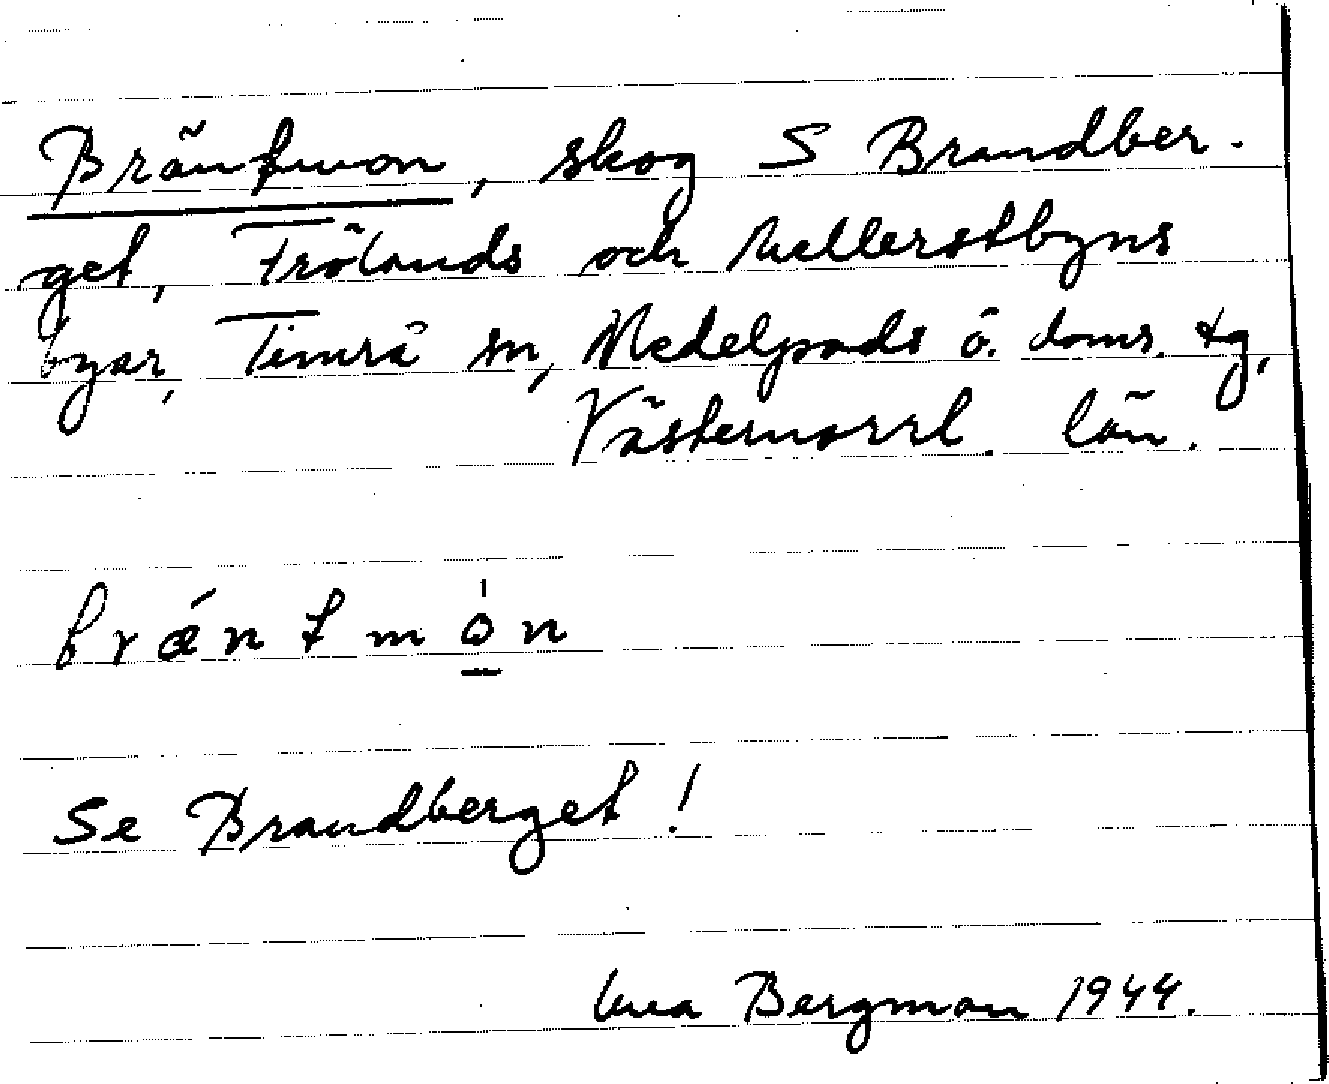 Bräntmon, skog S Brandber-
get, Frölands och
byar, Timrå sn, Medelpads ö. doms. tg,
Västernorrl. län.
bræ´ntmo̱n
Se Brandberget!
Bergman 1944.